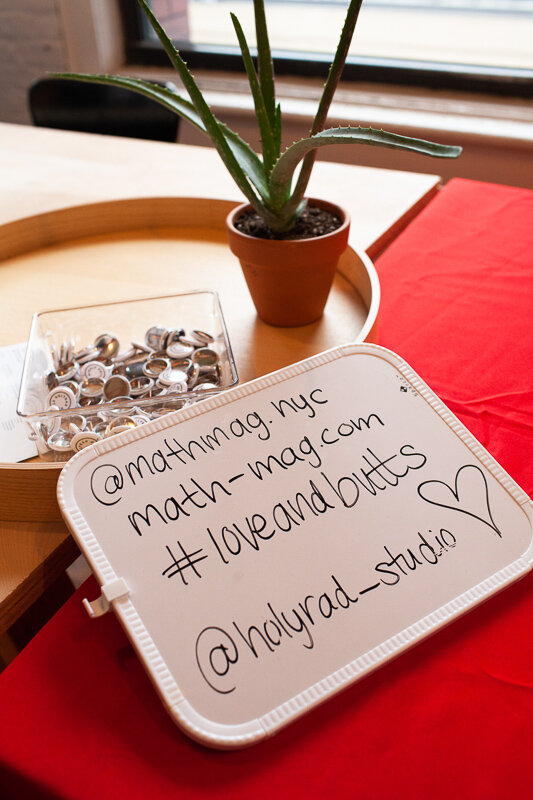 @mathmag.nyc
math-mag.com
#loveandbutts
@holyrad_studio